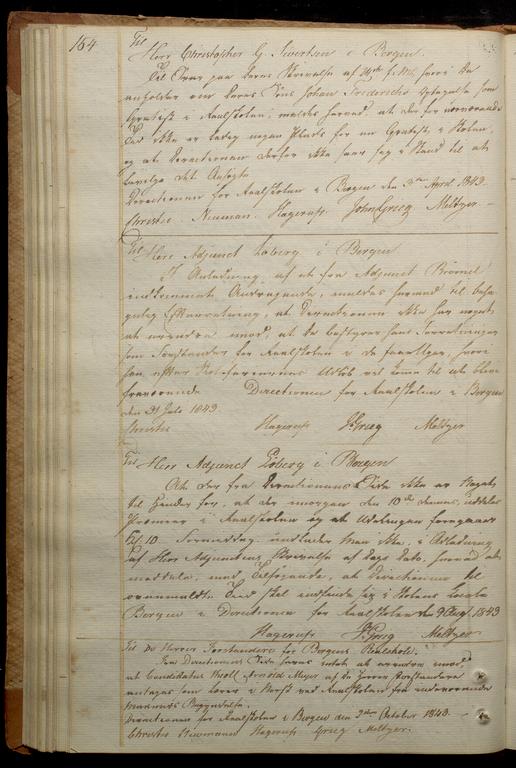 164
Til
Herr Christopher G. Sivertsen i Bergen.
Til Svar paa Deres Skrivelse af 24de f. M., hvori De
anholder om Deres Søns Johan Fredericks Optagelse som
Gratist i Realskolen, meldes herved, at der for nærværende
Tid ikke er ledig nogen Plads for en Gratist i Skolen,
og at Directionen derfor ikke seer sig i Stand til at
bevilge det Ansøgte.
Directionen for Realskolen i Bergen den 3die April 1843.
Christie Neuman Hagerup John Grieg Meltzer
Til Herr Adjunct Løberg i Bergen
I Anledning af et fra Adjunct
indkommet Andragende, meldes herved til behagelig Efterretning, at Directionen ikke har noget
at erindre mod, at De bestyrer hans Forretninger
som Forstander for Realskolen i de Dage, hvori
han efter Skoleferiernes Udløb vil komme til at blive
fraværende Directionen for Realskolen i Bergen
den 31 Juli 1843.
Christie Hagerup J. Grieg Meltzer
Til Herr Adjunct Løberg i Bergen
At der fra Directionens Side ikke er Noget
til Hinder for, at der imorgen den 10de dennes uddeles
Præmier i Realskolen og at Uddelingen foregaaer
Kl. 10 Formiddag undlader man ikke, i Anledning
af Herr Adjunctens Skrivelse af Dags Dato, herved at
meddele, med Tilføiende, at Directionen til
ovenmeldte Tid skal indfinde sig i Skolens Locale
Bergen i Directionen for Realskolen den 9 Aug. 1843
Hagerup J. Grieg Meltzer
Til De Herrer Forstandere for Bergens Realskole.
Fra Directionens Side haves intet at erindre mod
at Candidatus Theoll Arnold Meyer af de Herrer Forstandere
antages som Lærer i Norsk ved Realskolen fra indeværende
Maaneds Begyndelse.
Directionen for Realskolen i Bergen den 3die October 1843.
Christie Neumann Hagerup Grieg Meltzer.